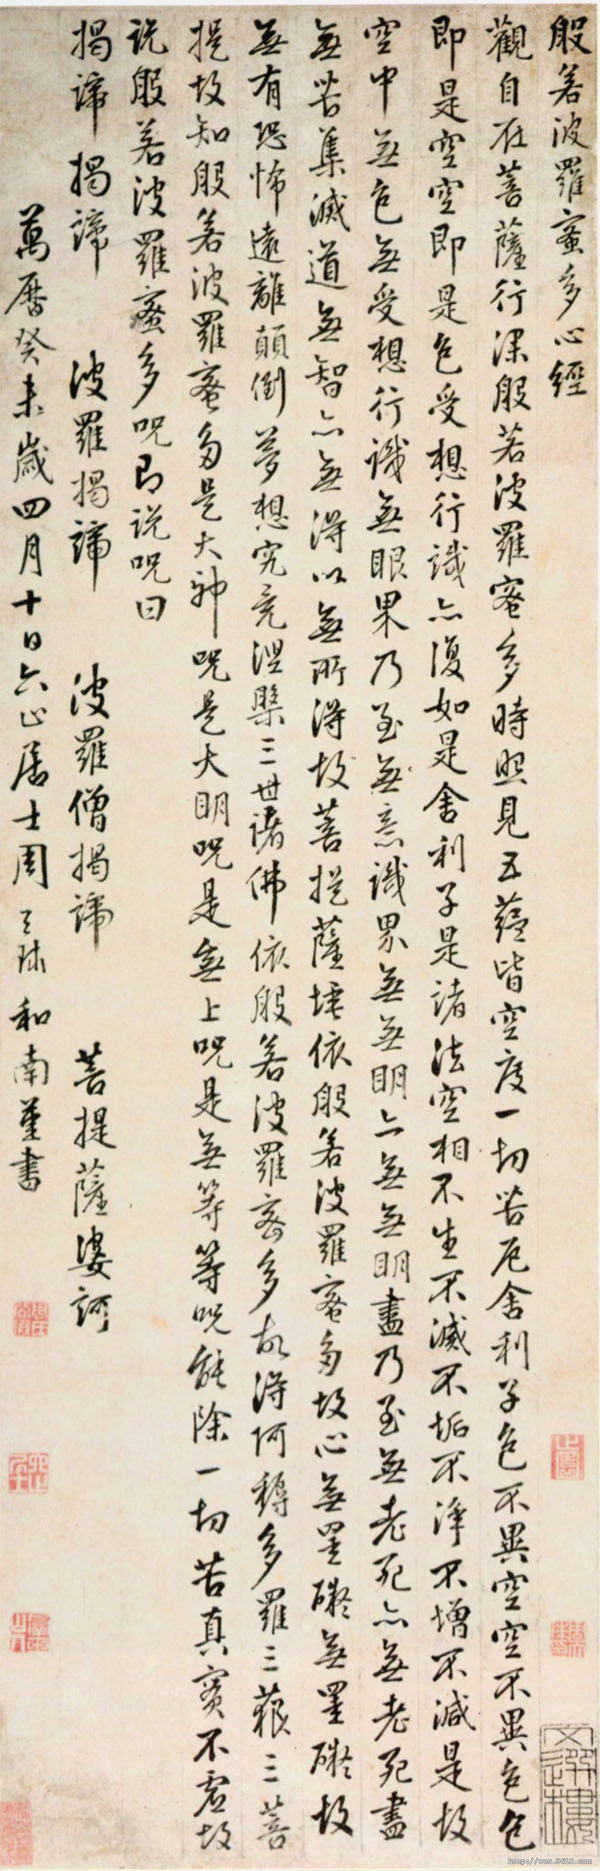 般若波羅蜜多心經
觀自在菩薩行深般若波羅蜜多時照見五蘊皆空度一切苦厄舍利子色不異空空不異色色
即是空空即是色受想行識亦復如是舍利子是諸法空相不生不滅不垢不淨不增不減是故
空中無色無受想行識無眼界乃至無意識界無無明亦無無明盡乃至無老死亦無老死盡
無苦集滅道無智亦無得以無所得故菩提薩埵依般若波羅蜜多故心無罣礙無罣礙故
無有恐怖遠離顛倒夢想究竟涅槃三世諸佛依般若波羅蜜多故得阿耨多羅三藐三菩
提故知般若波羅蜜多是大神呪是大明呪是無上呪是無等等呪能除一切苦真實不虛故
說般若波羅蜜多呪即說呪曰
揭諦揭諦 波羅揭諦 波羅僧揭諦 菩提薩婆訶
萬曆癸未歲四月十日六止居士周天球和南謹書
文選樓